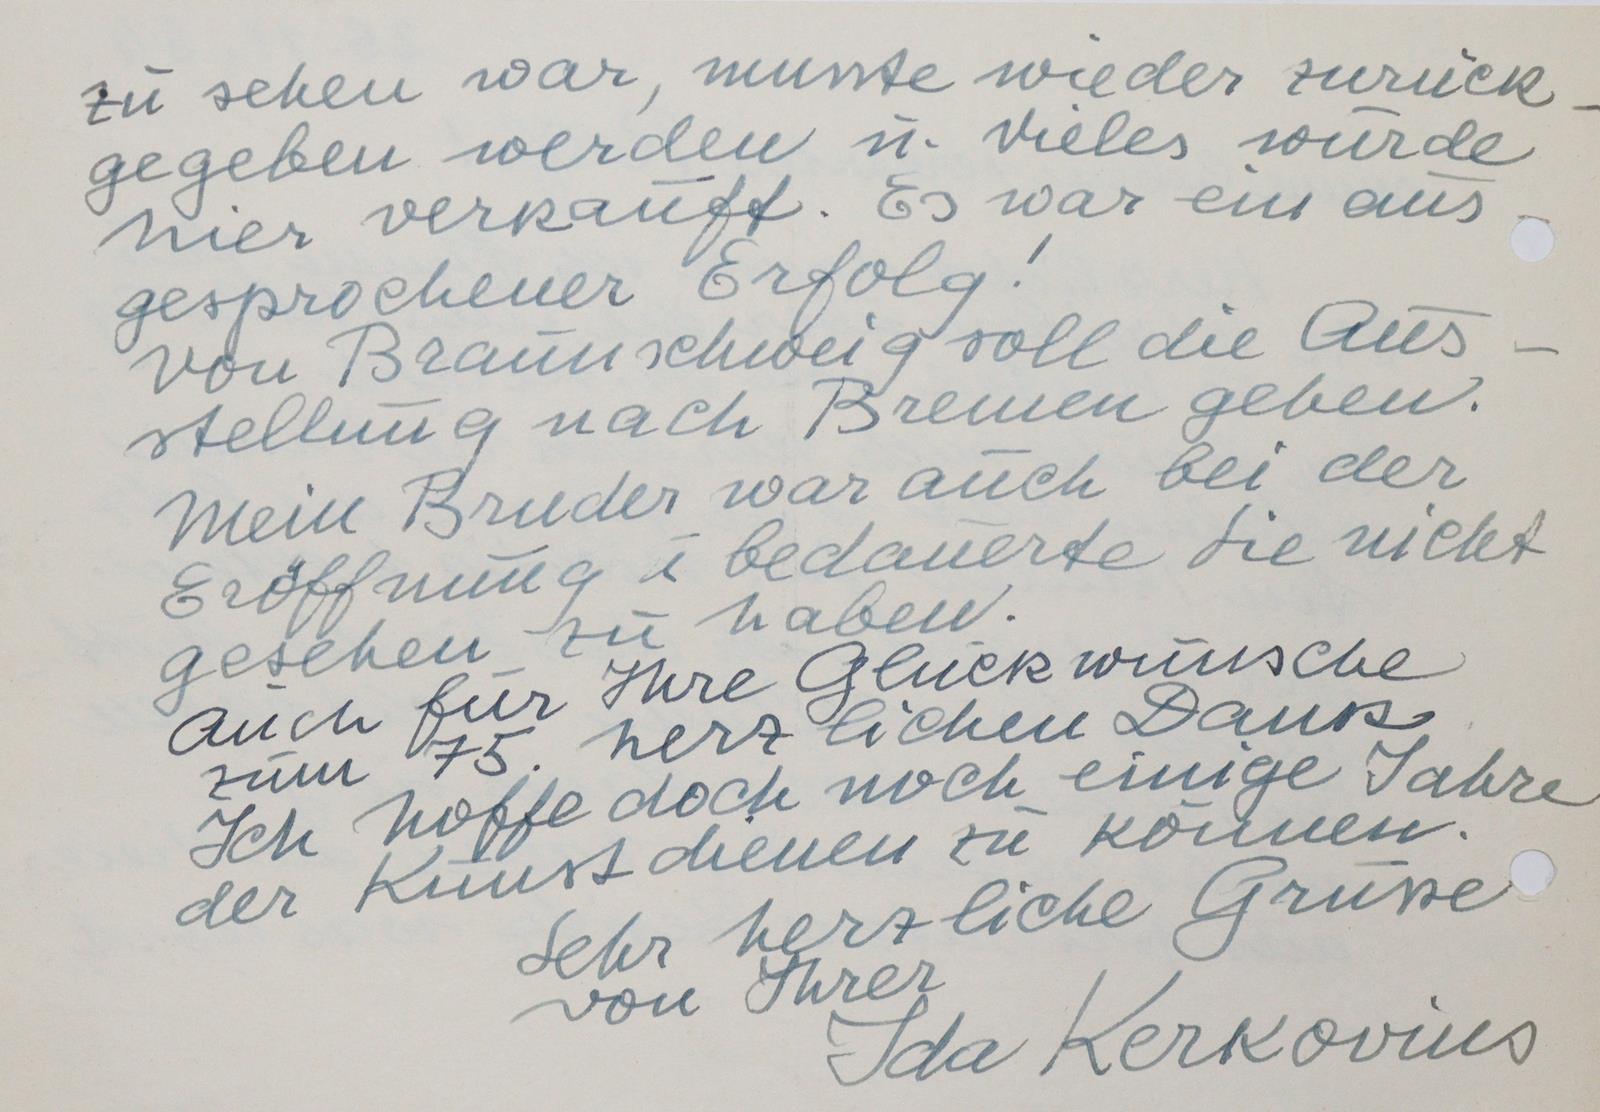 zu sehen war, musste wieder zurück-
gegeben werden u. vieles wurde
hier verkauft. Es war ein aus
gesprochener Erfolg!
Von Braunschweig soll die Aus-
stellung nach Bremen gehen.
Mein Bruder war auch bei der
Eröffnung u bedauerte Sie nicht
gesehen zu haben.
Auch für Ihre Glückwünsche
zum 75. herzlichen Dank
Ich hoffe doch noch einige Jahre
der Kunst dienen zu können.
Sehr herzliche Grüsse
von Ihrer
Ida Kerkovius